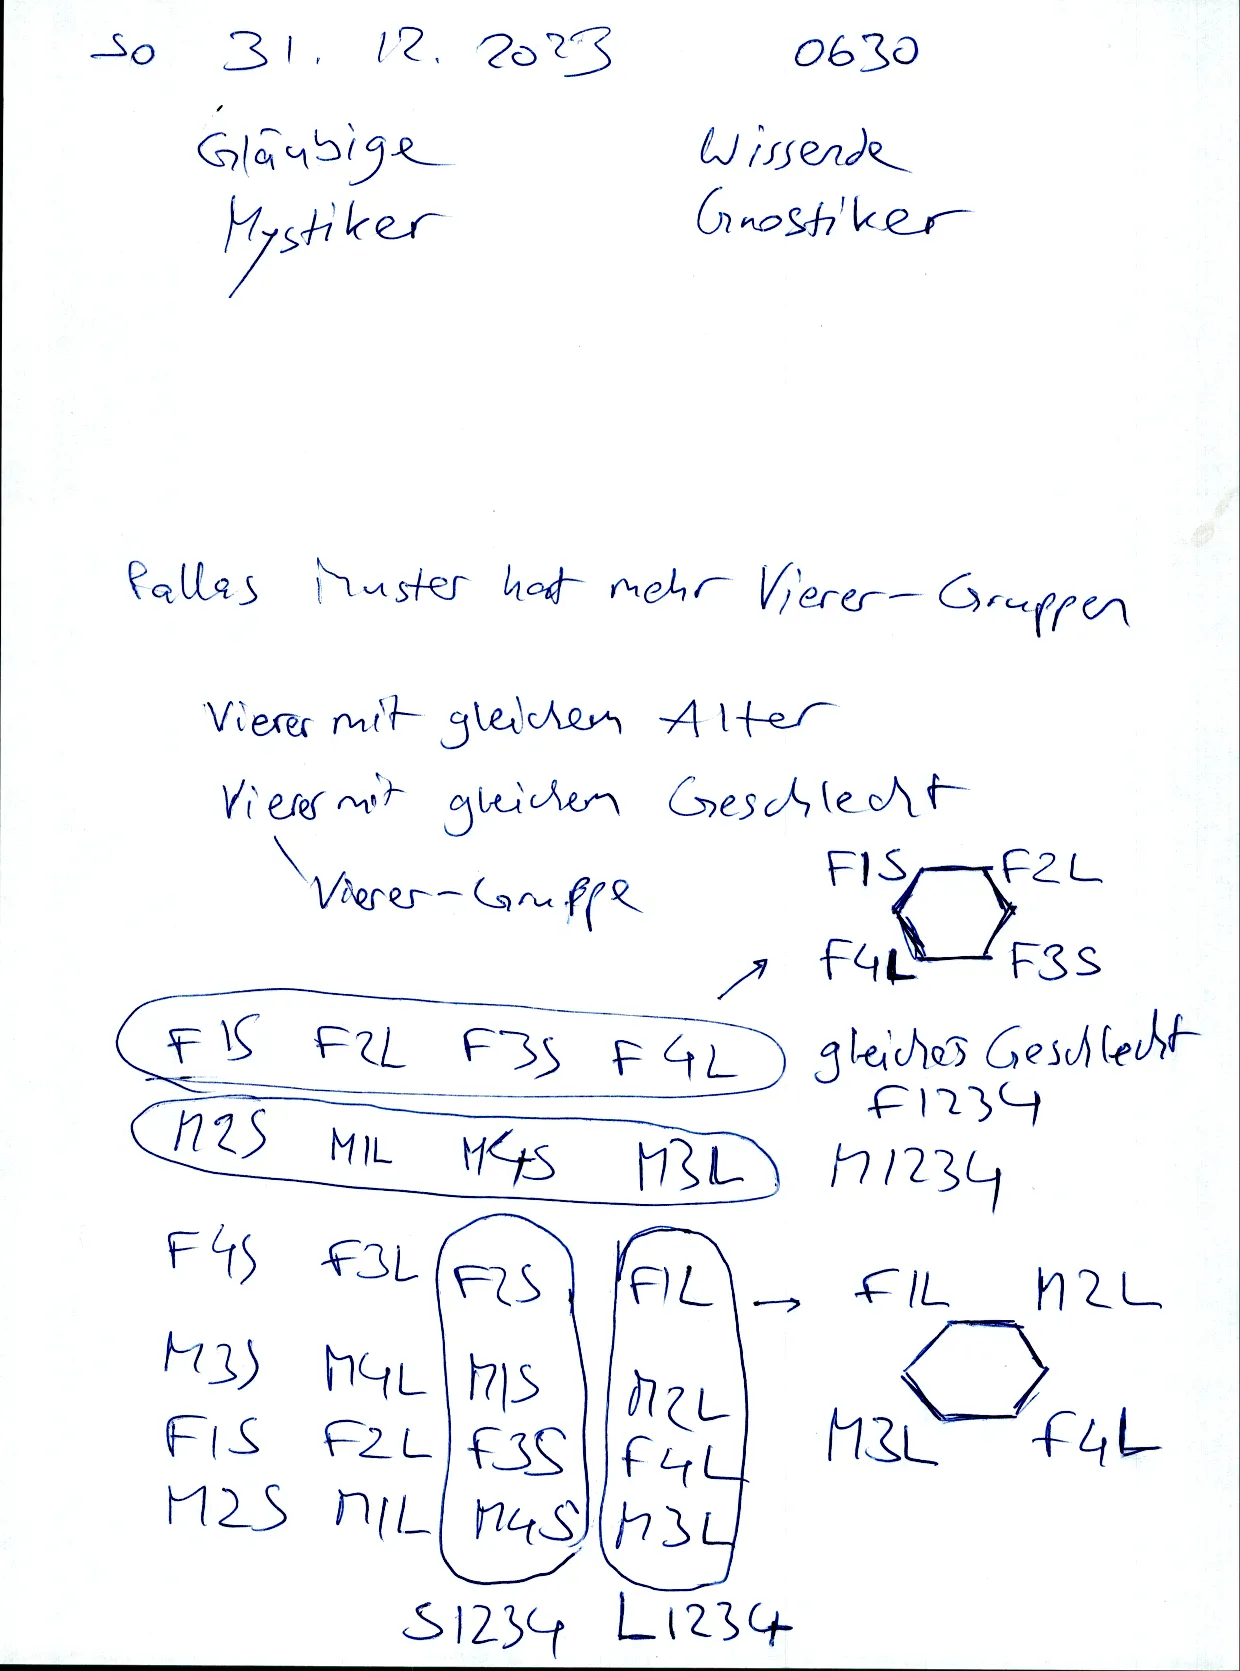 So 31. 12. 2023 0630
Gläubige Wissende
Mystiker Gnostiker
Pallas Muster hat mehr Vierer-Gruppen
Vierer mit gleichem Alter
Vierer mit gleichem Geschlecht
Vierer-Gruppe
F1S F2L
F4L F3S
F1S F2L F3S F4L gleiches Geschlecht
F1234
M2S M1L M4S M3L M1234
F4S F3L F2S F1L → F1L M2L
M3S M4L M1S M2L
F1S F2L F3S F4L M3L F4L
M2S M1L M4S M3L
S1234 L1234